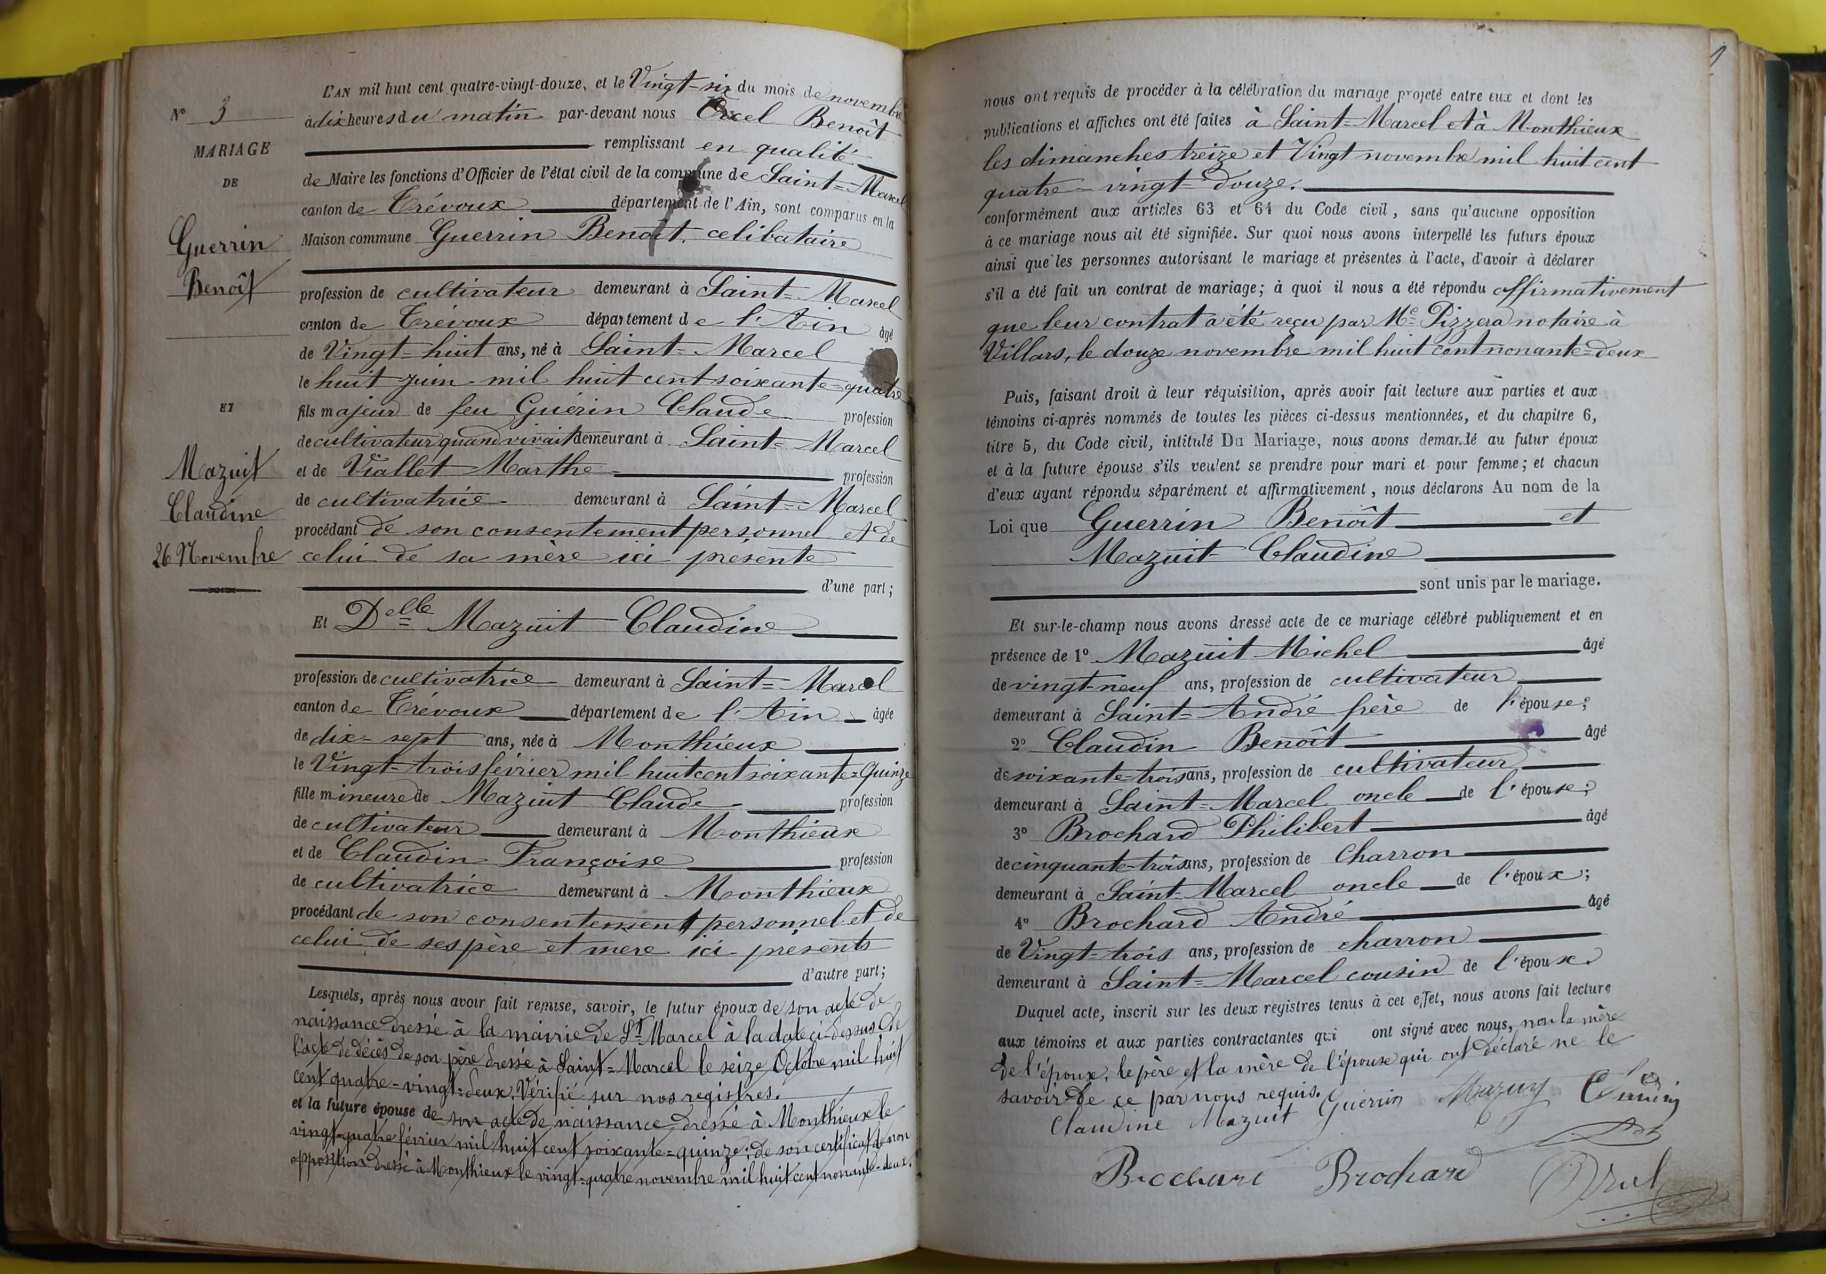 L'AN mil huit cent quatre-vingt-douze, et le Vingt-six du mois de novembre
N° 3
à dix heures du matin par-devant nous Orcel Benoît
MARIAGE
remplissant en qualité
DE
de Maire les fonctions d'Officier de l'état civil de la commune de Saint=Marcel
canton de Trévoux département de l'Ain, sont comparus en la
Guerrin
Maison commune Guerrin Benoît, celibataire
Benoît
profession de cultivateur demeurant à Saint=Marcel
canton de Trévoux département de l'Ain âgé
de Vingt-huit ans, né à Saint=Marcel
le huit juin mil huit cent soixante=quatre
ET
fils majeur de feu Guérin Claude profession
de cultivateur quand vivait demeurant à Saint=Marcel
Mazuit
et de Viallet Marthe profession
Claudine
de cultivatrice demeurant à Saint=Marcel
procédant de son consentement personnel et de
26 Novembre
celui de sa mère ici présente
d'une part;
Et Delle Mazuit Claudine
profession de cultivatrice demeurant à Saint=Marcel
canton de Trévoux département de l'Ain âgée
de dix=sept ans, née à Monthieux
le Vingt=trois février mil huit cent soixante=Quinze
fille mineure de Mazuit Claude profession
de cultivateur demeurant à Monthieux
et de Claudin Françoise profession
de cultivatrice demeurant à Monthieux
procédant de son consentement personnel et de
celui de ses père et mere ici présents
d'autre part;
Lesquels, après nous avoir fait remise, savoir, le futur époux de son acte de
naissance dressé à la mairie de St Marcel à la date ci-dessus de
l'acte de décès de son père dressé à Saint=Marcel le seize Octobre mil huit
cent quatre-vingt=deux. Vérifié sur nos registres.
et la future épouse de son acte de naissance dressé à Monthieux le
vingt-quatre février mil huit cent soixante=quinze; de son certificat de non
opposition dressé à Monthieux le vingt-quatre novembre mil huit cent nonante-deux.
nous ont requis de procéder à la célébration du mariage projeté entre eux et dont les
publications et affiches ont été faites à Saint=Marcel et à Monthieux
les dimanches treize et Vingt novembre mil huit cent
quatre-vingt=douze.
conformément aux articles 63 et 64 du Code civil, sans qu'aucune opposition
à ce mariage nous ait été signifiée. Sur quoi nous avons interpellé les futurs époux
ainsi que les personnes autorisant le mariage et présentes à l'acte, d'avoir à déclarer
s'il a été fait un contrat de mariage; à quoi il nous a été répondu affirmativement
que leur contrat a été reçu par Me Pizzera notaire à
Villars, le douze novembre mil huit cent nonante=deux
Puis, faisant droit à leur réquisition, après avoir fait lecture aux parties et aux
témoins ci-après nommés de toutes les pièces ci-dessus mentionnées, et du chapitre 6,
titre 5, du Code civil, intitulé Du Mariage, nous avons demandé au futur époux
et à la future épouse s'ils veulent se prendre pour mari et pour femme; et chacun
d'eux ayant répondu séparément et affirmativement, nous déclarons Au nom de la
Loi que Guerrin Benoît et
Mazuit Claudine
sont unis par le mariage.
Et sur-le-champ nous avons dressé acte de ce mariage célébré publiquement et en
présence de 1° Mazuit Michel âgé
de vingt-neuf ans, profession de cultivateur
demeurant à Saint=André frère de l'épouse;
2° Claudin Benoît âgé
de soixante-trois ans, profession de cultivateur
demeurant à Saint=Marcel oncle de l'épouse;
3° Brochard Philibert âgé
de cinquante-trois ans, profession de charron
demeurant à Saint-Marcel oncle de l'époux;
4° Brochard André âgé
de Vingt-trois ans, profession de charron
demeurant à Saint=Marcel cousin de l'époux.
Duquel acte, inscrit sur les deux registres tenus à cet effet, nous avons fait lecture
aux témoins et aux parties contractantes qui ont signé avec nous, non la mère
de l'époux, le père et la mère de l'épouse qui ont déclaré ne le
savoir de ce par nous requis.
Claudine Mazuit Guérrin Mazuy
Brochard Brochard Orcel